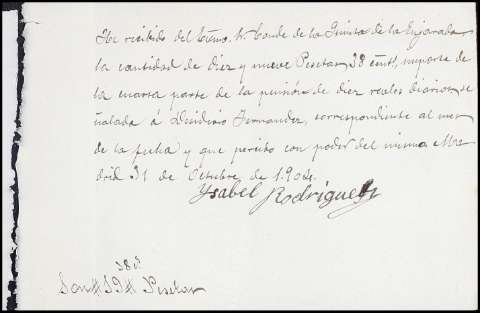 He recibido del Excmo. Sr. Conde de la Quinta de la Enjarada
la cantidad de diez y nueve Pesetas 38 cénts, importe de
la cuarta parte de la pensión de diez reales diarios, se
ñalada á Desiderio Fernandez, correspondiente al mes
de la fecha y que percibo con poder del mismo Ma
drid 31 de Octubre de 1904.
Ysabel Rodriguez
38 cs
Son # 19 # Pesetas